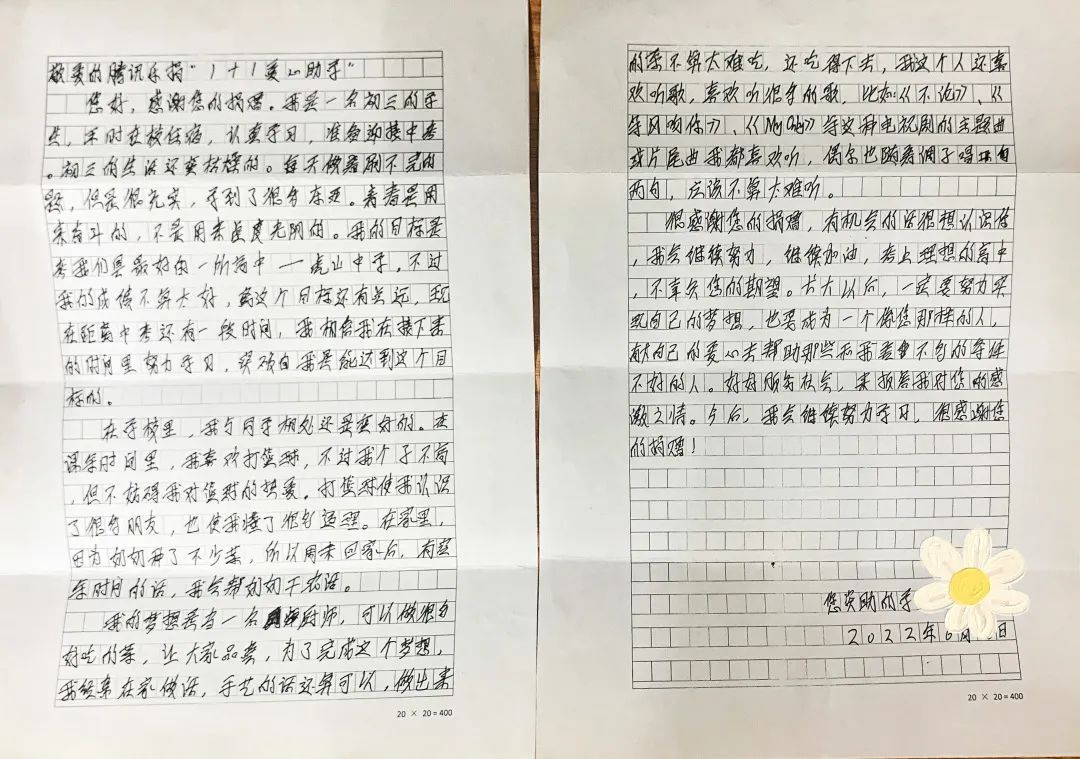 敬爱的腾讯乐捐“1+1爱心助学”
您好，感谢您的捐赠。我是一名初三的学
生，平时在校住宿，认真学习，准备迎接中考
。初三的生活还蛮枯燥的。每天做着刷不完的
题，但是很充实，学到了很多东西。青春是用
来奋斗的，不是用来虚度光阴的。我的目标是
考我们县最好的一所高中——虎山中学。不过
我的成绩不算太好，离这个目标还有点远，现
在距离中考还有一段时间，我相信我在接下来
的时间里努力学习，突破自我是能达到这个目
标的。
在学校里，我与同学相处还是蛮好的。在
课余时间里，我喜欢打篮球，不过我个子不高
，但不妨碍我对篮球的热爱。打篮球使我认识
了很多朋友，也使我懂了很多道理。在家里，
因为奶奶种了不少菜，所以周末回家后，有空
余时间的话，我会帮奶奶干农活。
我的梦想是当一名厨师，可以做很多
好吃的菜，让大家品尝，为了完成这个梦想，
我经常在家做饭，手艺的话还算可以，做出来
的菜不算太难吃，还吃得下去，我这个人还喜
欢听歌，喜欢听很多的歌，比如《不论》、《
等风吻你》、《My Only》等这种电视剧的主题曲
或片尾曲我都喜欢听，偶尔也随着调子唱
两句，应该不算太难听。
很感谢您的捐赠，有机会的话很想认识你
，我会继续努力，继续加油，考上理想的高中
，不辜负您的期望。长大以后，一定要努力实
现自己的梦想，也要成为一个像您那样的人，
献自己的爱心去帮助那些和我差不多的条件
不好的人。好好服务社会，来报答我对您的感
激之情。今后，我会继续努力学习，很感谢您
的捐赠！
您资助的学
2022年6月 日
20 × 20 = 400
20 × 20 = 400